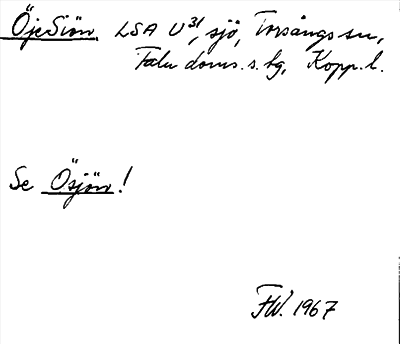 ÖjeSiön LSA U³¹, sjö, Torsångs sn,
Falu doms.s. fg, Kopp.l.
Se Ösjön!
FW. 1967